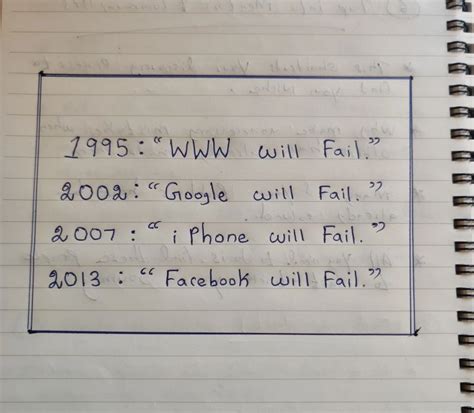 1995 : "WWW will Fail."
2002 : "Google will Fail."
2007 : "i Phone will Fail."
2013 : "Facebook will Fail."